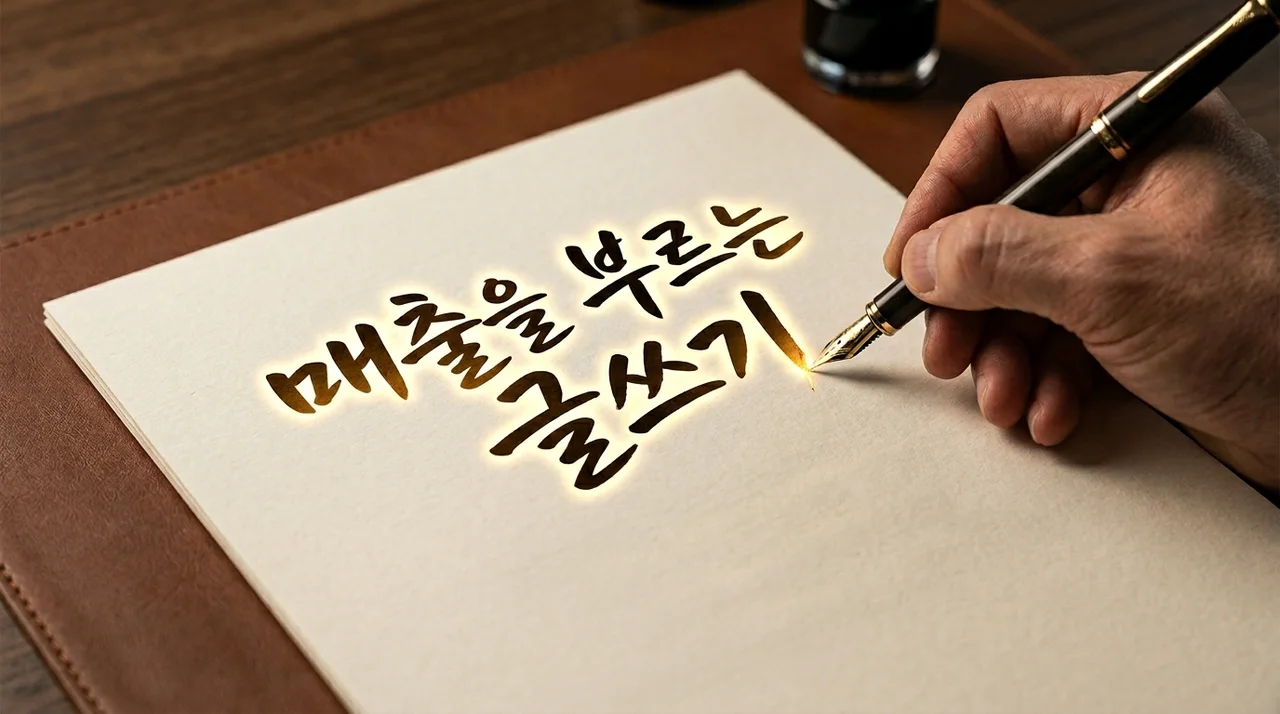 매출을 부르는
글쓰기